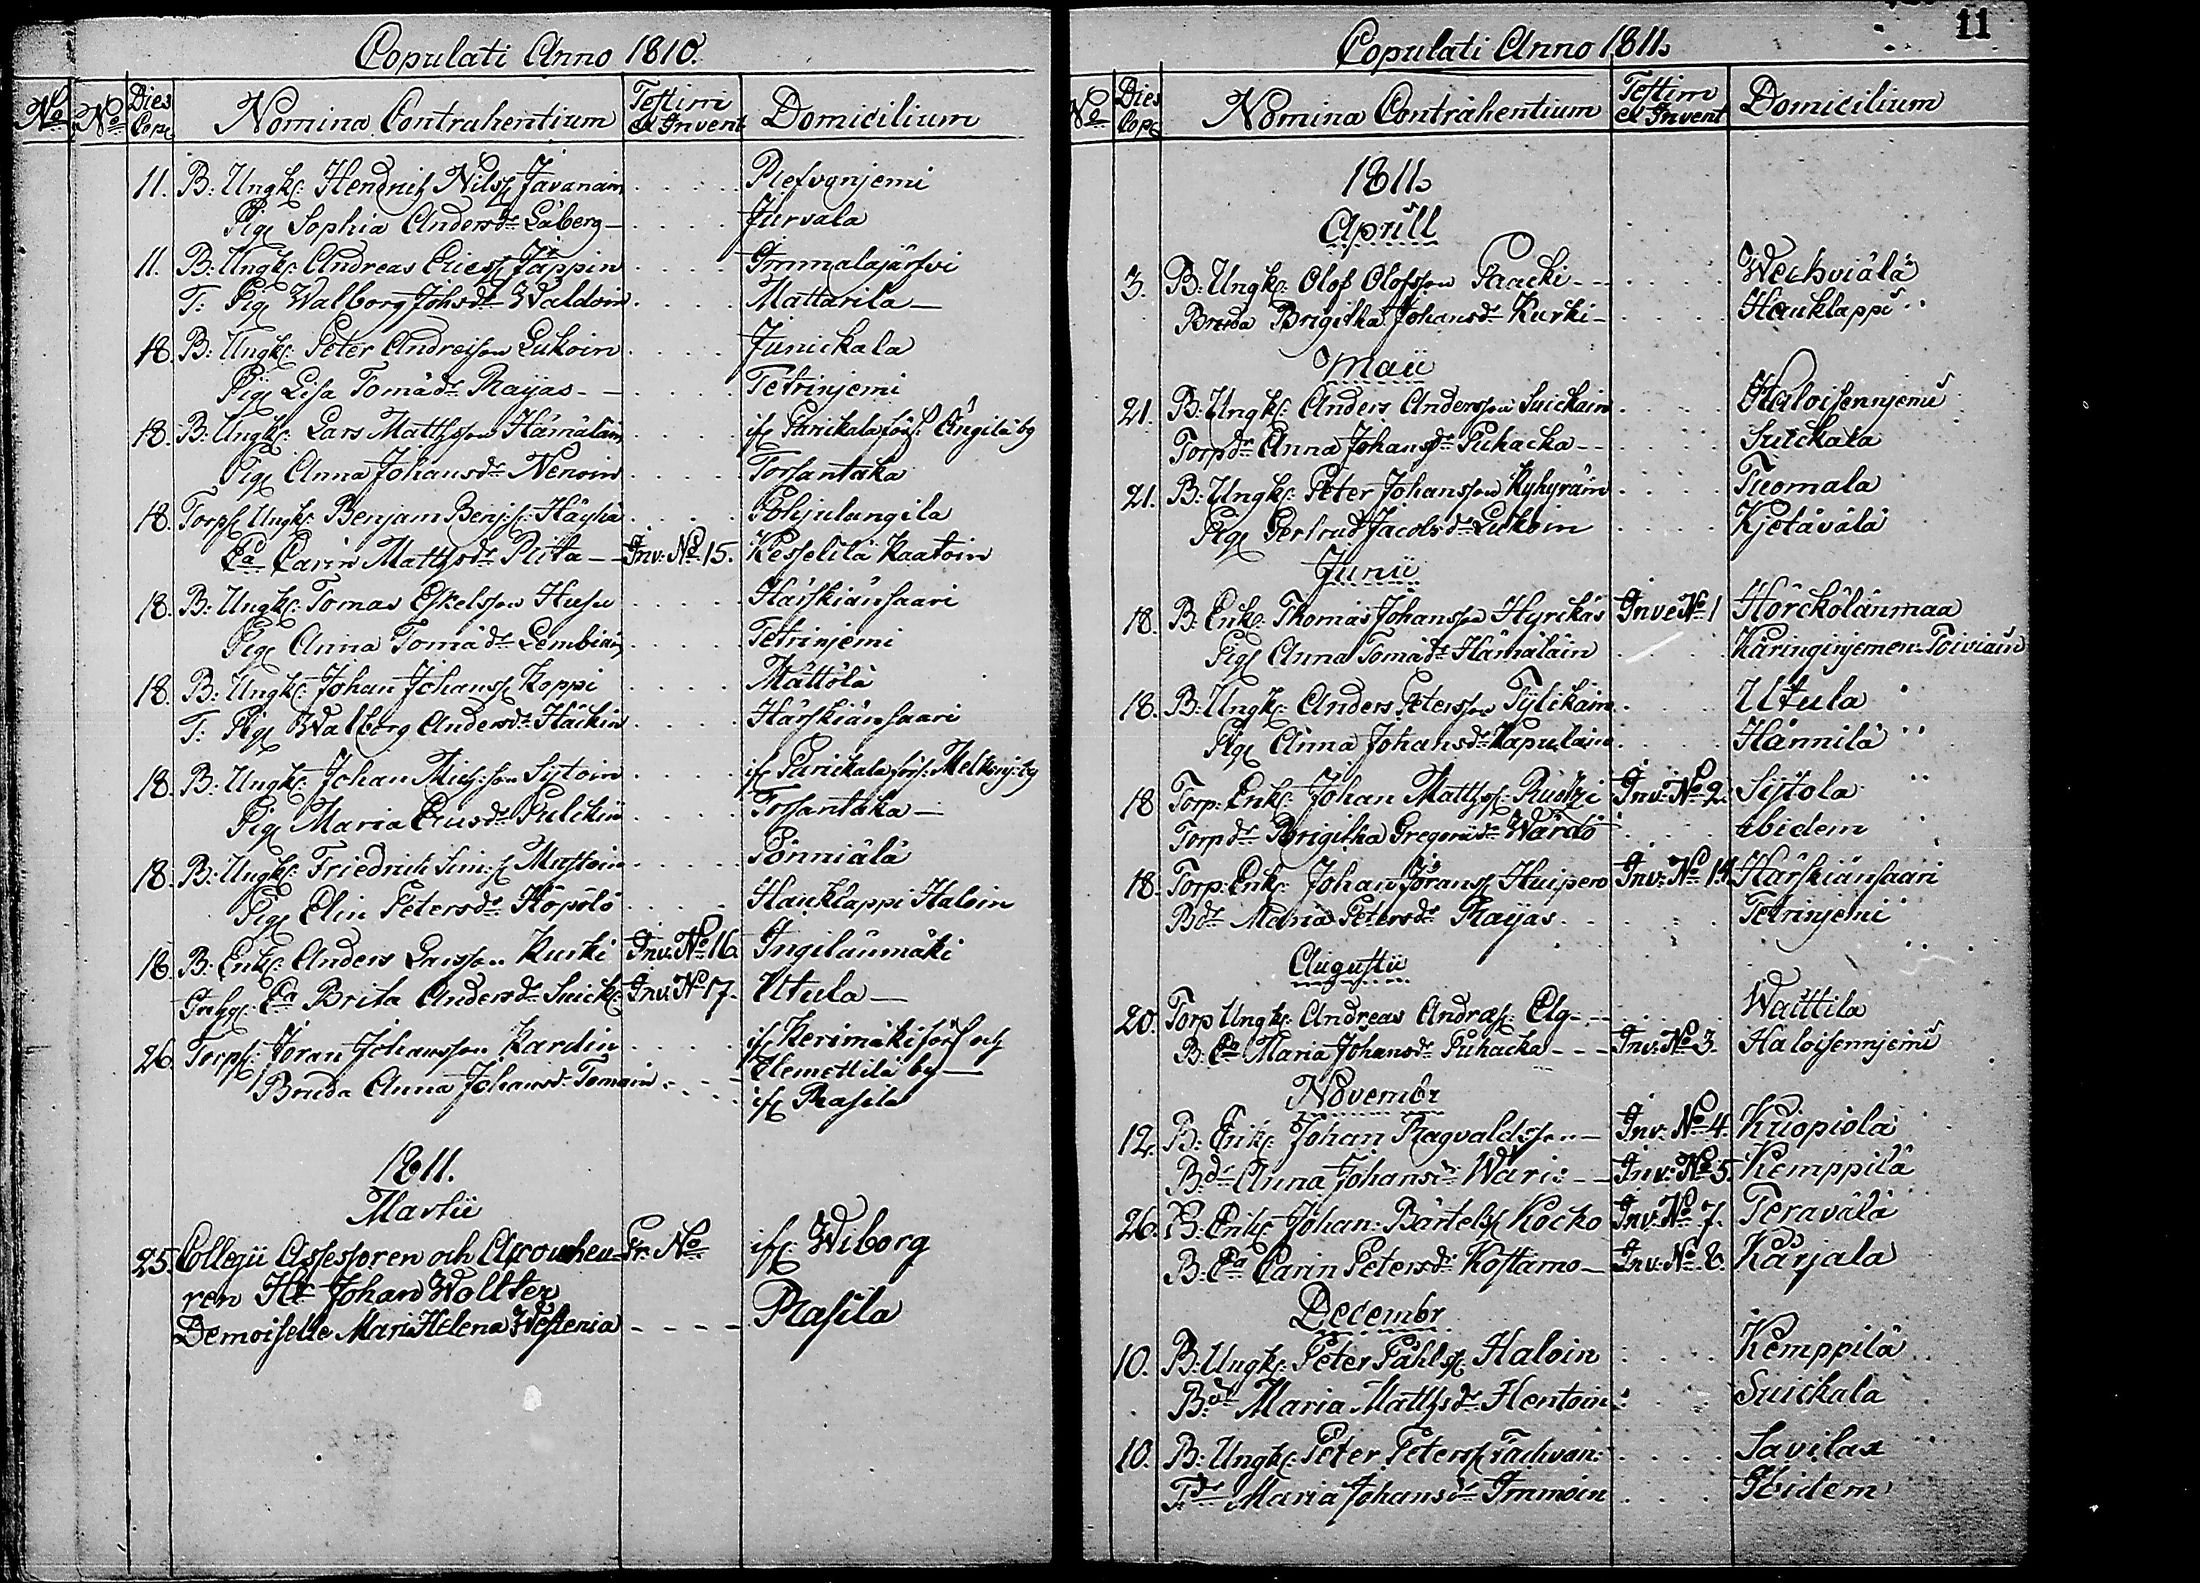 Copulati Anno 1810.
No No Dies Cop. Nomina Contrahentium Testim et Invent Domicilium
11. B: Ungk: Hendrich Nilss Javanain
Pig Sophia Andersdr Låberg Jurvala
11. B: Ungk: Andreas Ericss Jäppin Immalajärfvi
T: Pig Walborg Johsdr Waldoin Mattarila
18. B: Ungk: Peter Andreison Lukoin Junickala
Pig Lisa Tomadr Raijas Tetrinjemi
18. B: Ungk: Lars Matthsson Hämäläin if Parickala förs: Ängilä by
Pig Anna Johansdr Nenoin Torsantaka
18. Torps Ungk: Benjam Benj:s: Häyhä Pohjulangila
Ea Carin Matthsdr Riita Inv: No 15. Kesselilä Kaatoin
18. B: Ungk: Tomas Eskelsson Husu Härskiänsaari
Pig Anna Tomadr Lembiäin Tetrinjemi
18. B: Ungk: Johan Johanss Koppi Mättölä
T: Pig Walborg Andersdr Häckin Härskiänsaari
18. B: Ungk: Johan Mich:son Sytoin if Parickala förs: by
Pig Maria Pulckin Torsantaka
18. B: Ungk: Friedrich Sim:s Mustoin Pönniälä
Pig Elin Petersdr Höpölö Hauklappi Haloin
18. B: Enk: Anders Larsson Kurki Inv: No 16. Ingilänmäki
Ea Brita Andersdr Suick: Inv: No 17. Utula
26. Torps: Jöran Johansson Kardin if Kerimäki förs och
Bruda Anna Johansd: Tomain Hemettilä by
if Rasila
1811.
Martii
25. Collegii Assessoren och Pr: No if Wiborg
ren Hr Johan Woltter
Demoiselle Mari Helena Westenia Rasila
11
Copulati Anno 1811.
No Dies Cop. Nomina Contrahentium Testim et Invent Domicilium
1811.
Aprill
3. B: Ungk: Olof Olofsson Paacki Wechviälä
Bruda Brigitha Johansdr Kurki Hauklappi
Maii
21. B: Ungk: Anders Andersson Suickain Haloisennjemi
Torpdr Anna Johansdr Puhacka Suickala
21. B: Ungk: Peter Johansson Kyhyräin Tuomala
Pig Gertrud Jacobsdr Lukoin Kjetävälä
Junii
18. B: Enk: Thomas Johansson Hyrckäs Inve No 1 Hörckölänmaa
Pig Anna Tomadr Hämäläin Käringinjemen Toiviain
18. B: Ungk: Anders Petersson Tylikäin Utula
Pig Anna Johansdr Kapulain Hännilä
18 Torp: Enk: Johan Matths: Inv: No 2. Sijtola
Torpdr Brigitha Gregeriidr Wärdö Ibidem
18. Torp: Enk: Johan Jöranss Huipero Inv: No 14. Härskiänsaari
Bdr Maria Petersdr Raijas Tetrinjemi
Augustii
20. Torp Ungk: Andreas Andras: Elg Wättilä
B: Ea Maria Johansdr Puhacka Inv: No 3. Haloisennjemi
Novembr
12. B: Enk: Johan Ragvaldsson Inv: No 4. Kuopiola
B:dr Anna Johansdr Waris Inv: No 5. Kemppilä
26. B: Enk: Johan: Bärtelss Kocko Inv: No 7. Terävälä
B: Ea Carin Petersdr Kostamo Inv: No 8. Kärjala
Decembr
10. B: Ungk: Peter Påhls: Haloin Kemppilä
B:dr Maria Matthsdr Hentoin Suickala
10. B: Ungk: Peter Peterss Tachvan: Savilax
T:dr Maria Johansdr Immoin Ibidem